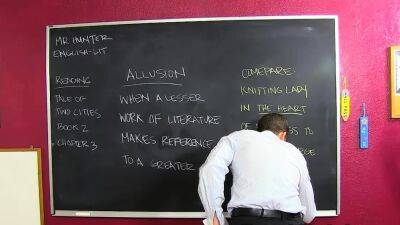 MR HUNTER
ENGLISH-LIT
READING
TALE OF
TWO CITIES
BOOK 2
CHAPTER 3
ALLUSION
WHEN A LESSER
WORK OF LITERATURE
MAKES REFERENCE
TO A GREATER
COMPARE:
KNITTING LADY
IN THE HEART
OF
TO